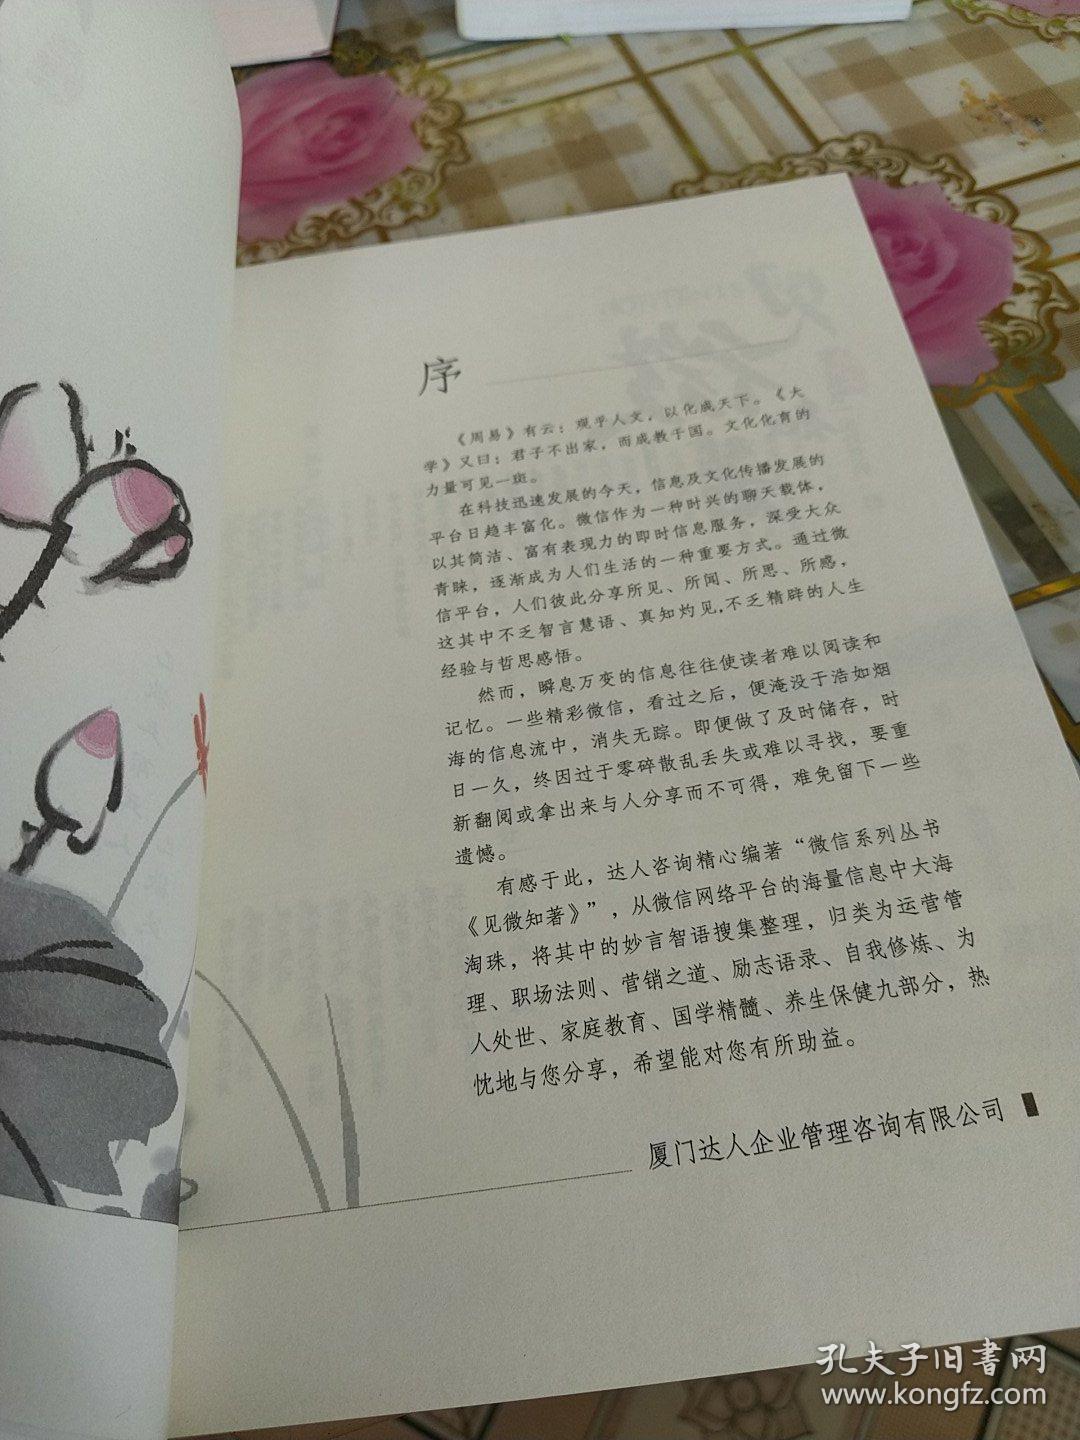 序
《周易》有云：观乎人文，以化成天下。《大
学》又曰：君子不出家，而成教于国。文化化育的
力量可见一斑。
在科技迅速发展的今天，信息及文化传播发展的
平台日趋丰富化。微信作为一种时兴的聊天载体，
以其简洁、富有表现力的即时信息服务，深受大众
青睐，逐渐成为人们生活的一种重要方式。通过微
信平台，人们彼此分享所见、所闻、所思、所感，
这其中不乏智言慧语、真知灼见,不乏精辟的人生
经验与哲思感悟。
然而，瞬息万变的信息往往使读者难以阅读和
记忆。一些精彩微信，看过之后，便淹没于浩如烟
海的信息流中，消失无踪。即便做了及时储存，时
日一久，终因过于零碎散乱丢失或难以寻找，要重
新翻阅或拿出来与人分享而不可得，难免留下一些
遗憾。
有感于此，达人咨询精心编著“微信系列丛书
《见微知著》”，从微信网络平台的海量信息中大海
淘珠，将其中的妙言智语搜集整理，归类为运营管
理、职场法则、营销之道、励志语录、自我修炼、为
人处世、家庭教育、国学精髓、养生保健九部分，热
忱地与您分享，希望能对您有所助益。
厦门达人企业管理咨询有限公司
孔夫子旧書网
www.kongfz.com